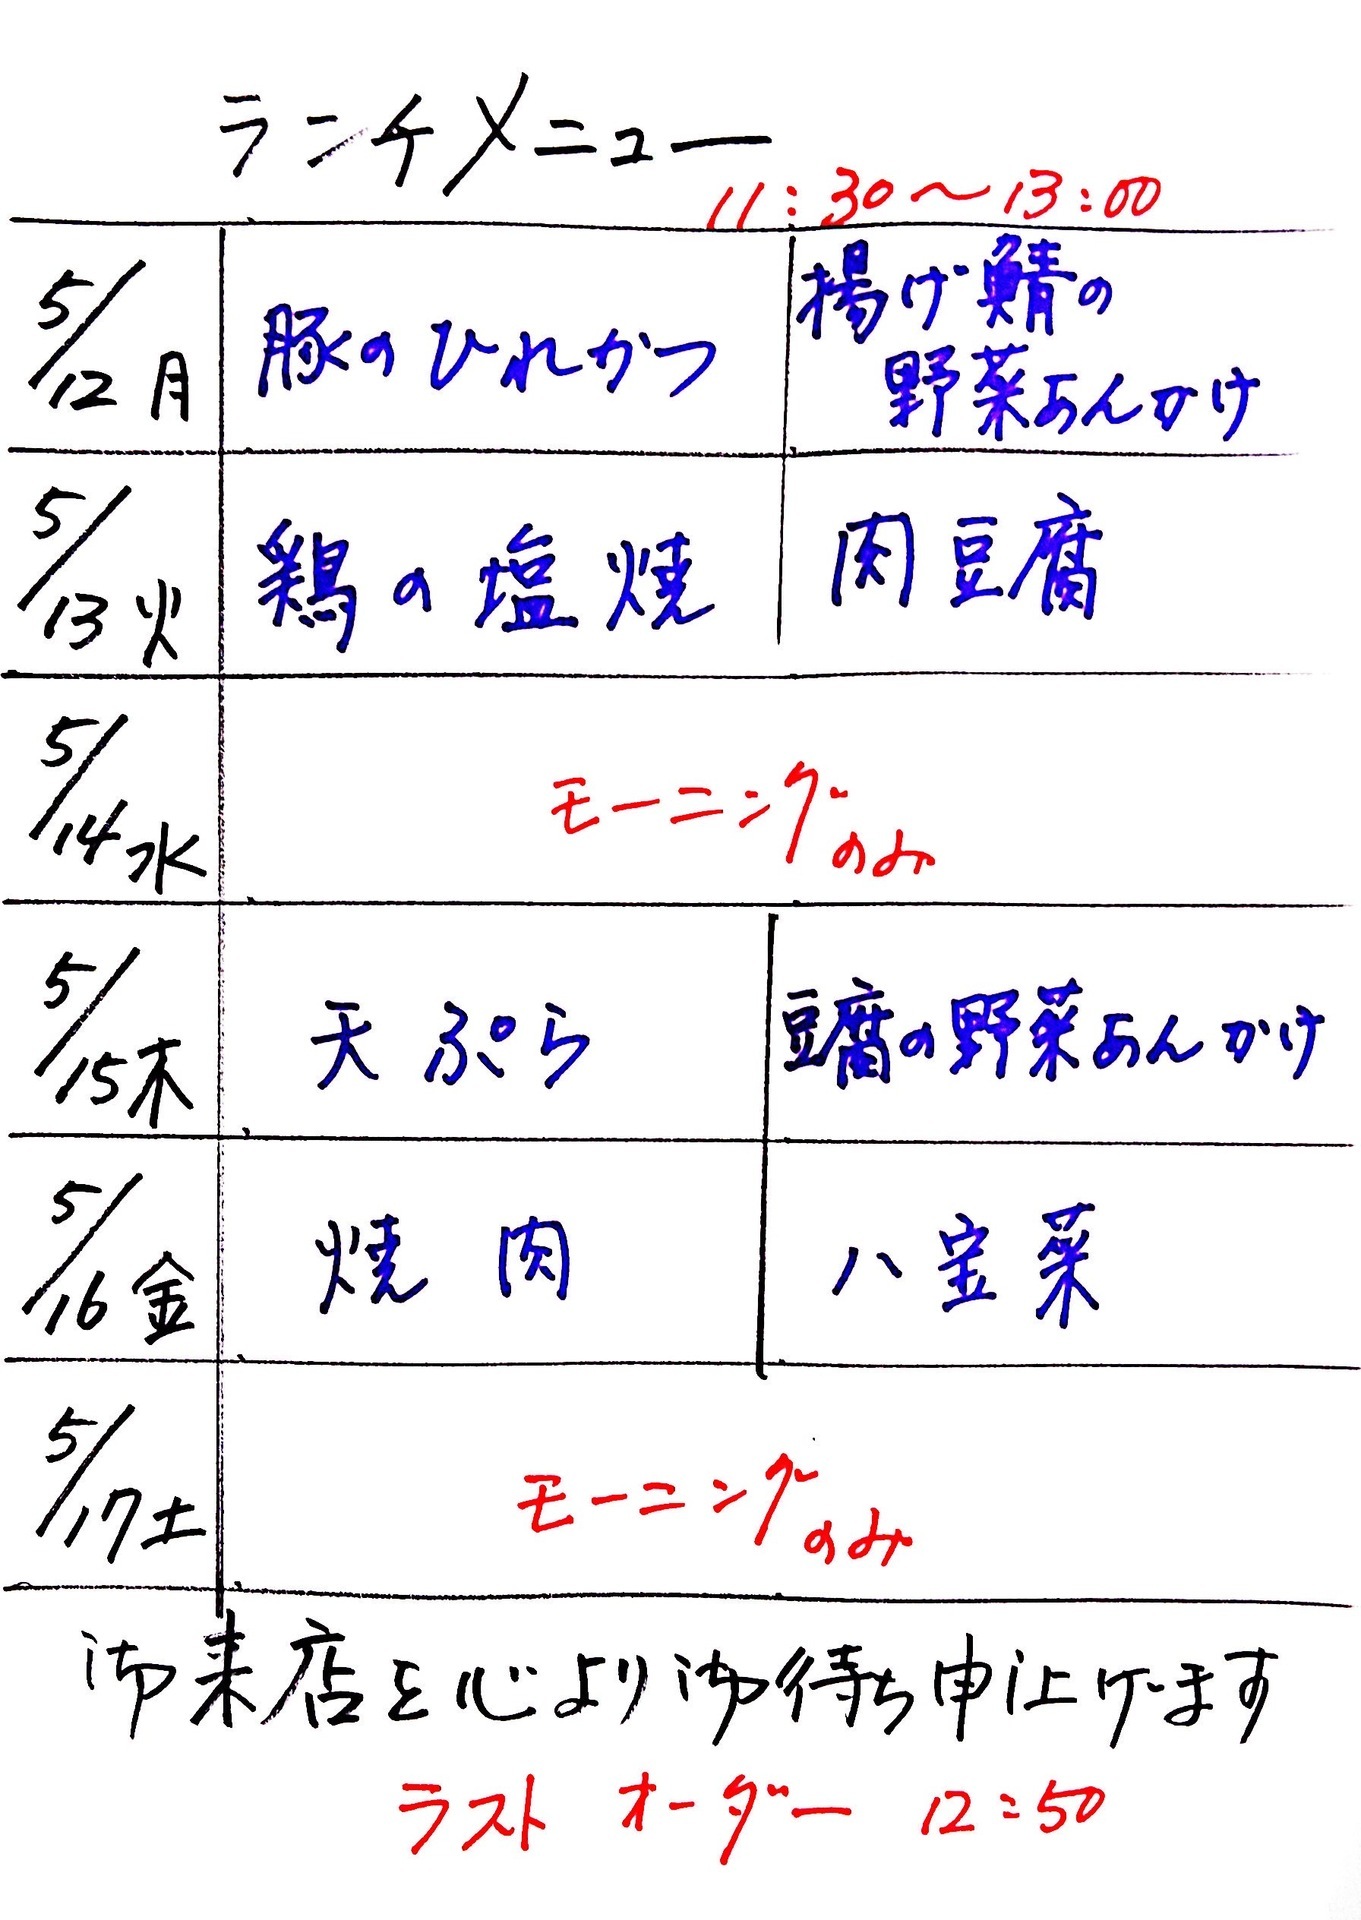 ランチメニュー
11:30～13:00
5/12 月
豚のひれかつ
揚げ鯖の
野菜あんかけ
5/13 火
鶏の塩焼
肉豆腐
5/14 水
モーニングのみ
5/15 木
天ぷら
豆腐の野菜あんかけ
5/16 金
焼肉
八宝菜
5/17 土
モーニングのみ
御来店を心より御待ち申し上げます
ラスト オーダー 12:50